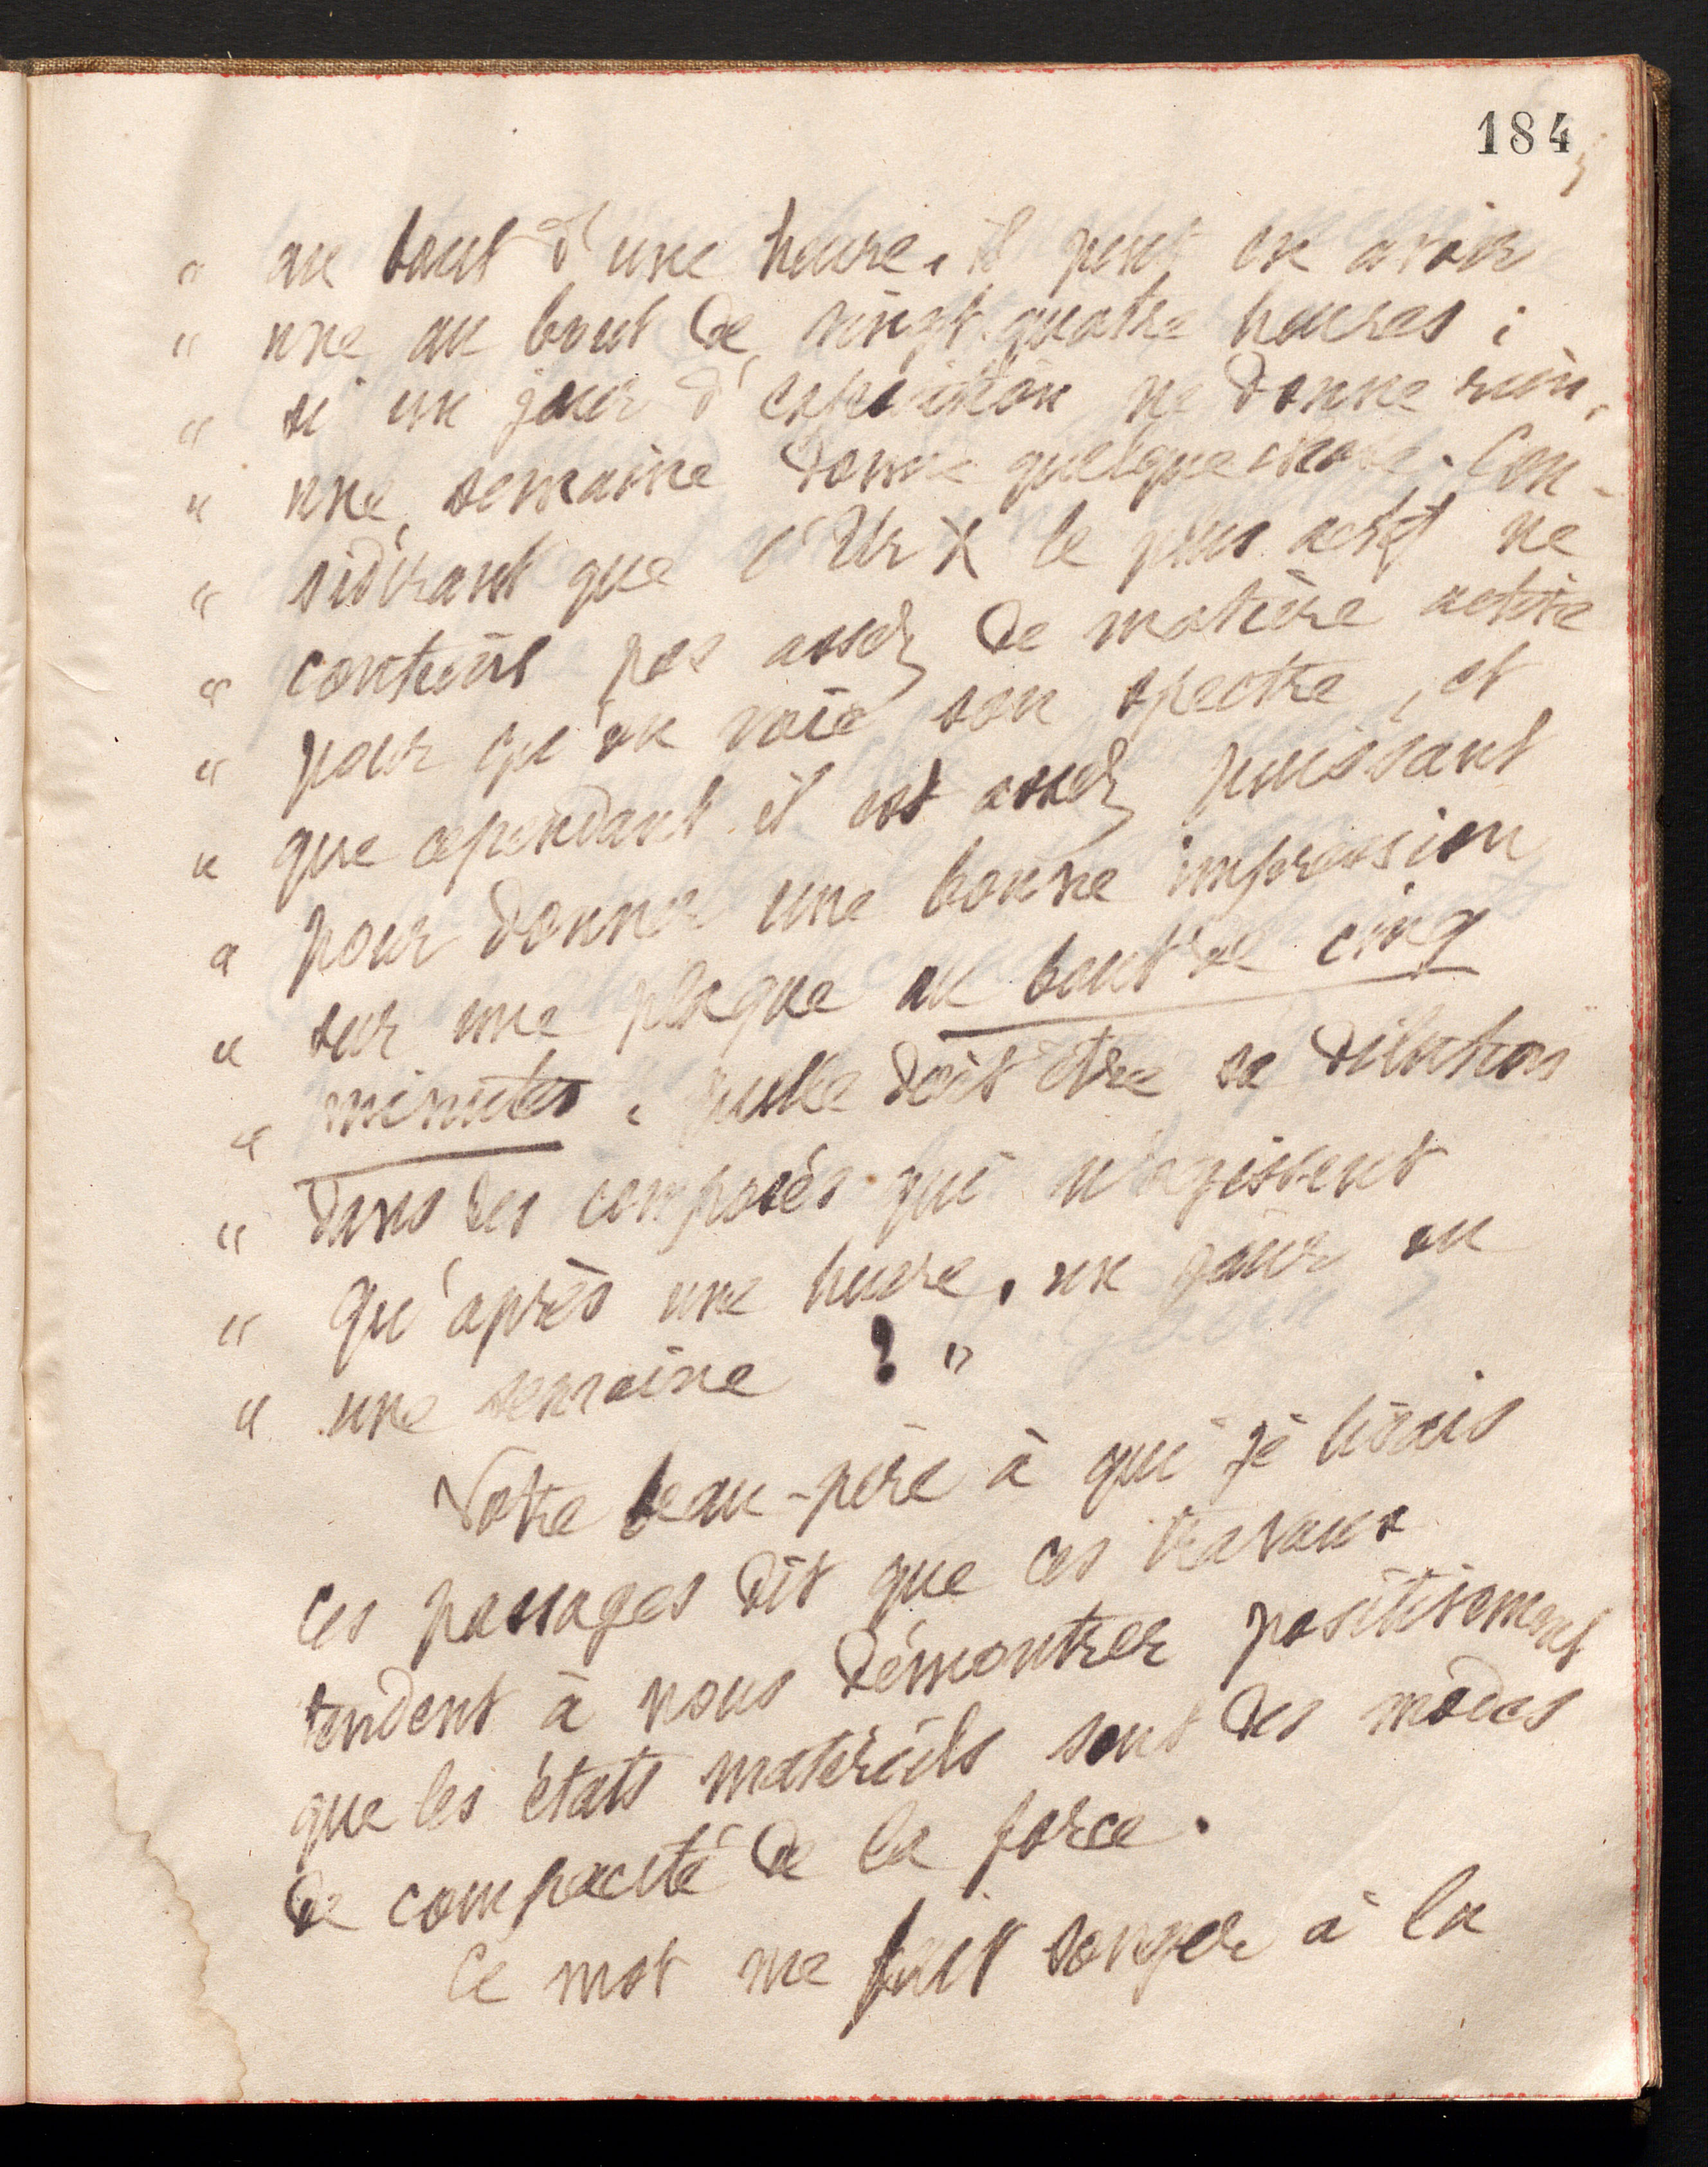 184
" au bout d'une heure, il peut en avoir
" une au bout de vingt quatre heures ;
" si un jour d'exposition ne donne rien,
" une semaine donne quelque chose. Con-
" sidérant que l'Ur X le plus actif ne
" contient pas assez de matière active
" pour qu'on voie son spectre, et
" que cependant il est assez puissant
" pour donner une bonne impression
" sur une plaque au bout de cinq
" minutes, quelle doit être sa dilution
" dans des composés qui n'agissent
" qu'après une heure, un jour ou
" une semaine ? "
Votre beau-père à qui je lisais
ces passages dit que ces travaux
tendent à nous démontrer positivement
que les états matériels sont des modes
de compacité de la force.
Ce mot me fait songer à la